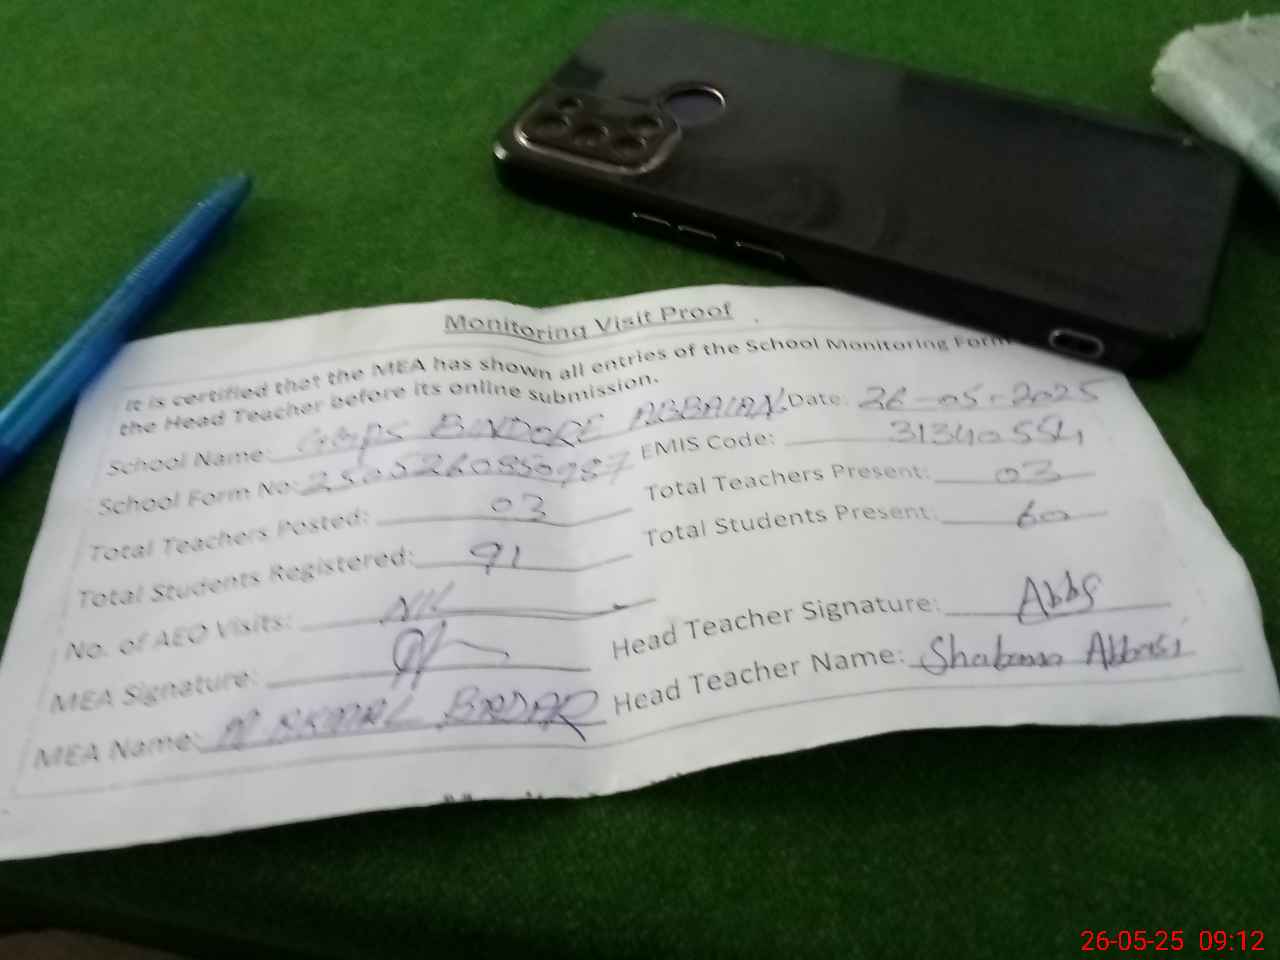 Monitoring Visit Proof
It is certified that the MEA has shown all entries of the School Monitoring Form
the Head Teacher before its online submission.
School Name: GMPS ABBASIAN Date: 26-05-2025
School Form No: EMIS Code: 31340554
Total Teachers Posted: 03 Total Teachers Present: 03
Total Students Registered: 91 Total Students Present: 60
No. of AEO Visits: Nil
MEA Signature: Head Teacher Signature: Abbs
MEA Name: Head Teacher Name: Shabana Abbasi
26-05-25 09:12